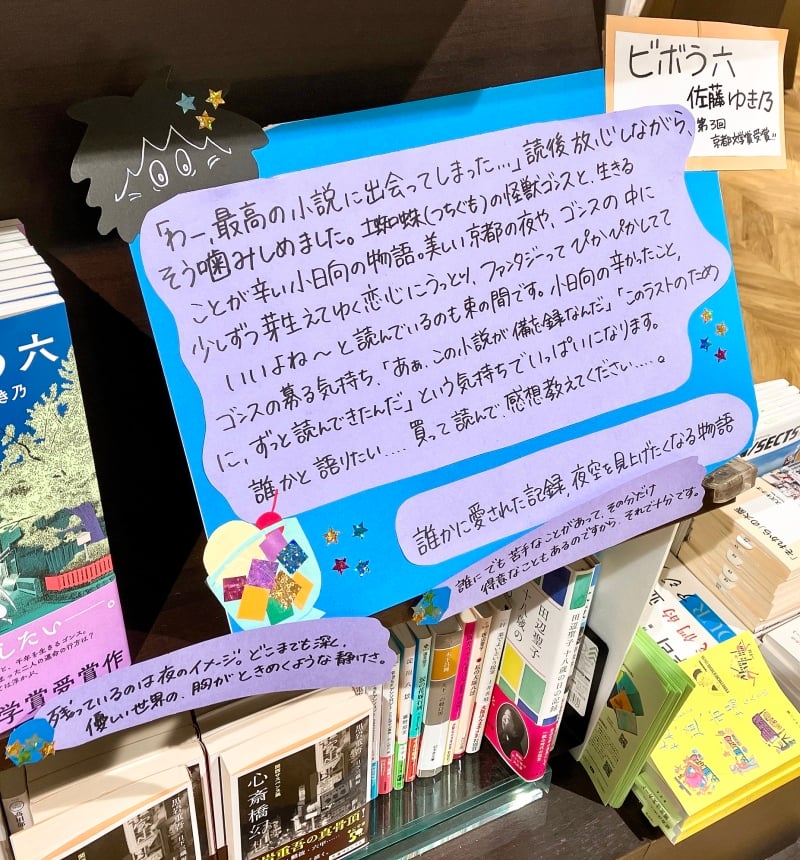 ビボう六
佐藤ゆき乃
第3回
京都文学賞受賞!!
「わー、最高の小説に出会ってしまった…」読後放心しながら、
そう噛みしめました。土蜘蛛(つちぐも)の怪獣ゴンスと、生きる
ことが辛い小日向の物語。美しい京都の夜や、ゴンスの中に
少しずつ芽生えてゆく恋心にうっとり、ファンタジーってぴかぴかしてて
いいよね〜と読んでいるのも束の間です。小日向の辛かったこと、
ゴンスの募る気持ち、「あぁ、この小説が備忘録なんだ」「このラストのため
に、ずっと読んできたんだ」という気持ちでいっぱいになります。
誰かと語りたい....買って読んで、感想教えてください.....。
誰かに愛された記録、夜空を見上げたくなる物語
誰にでも苦手なことがあって、その分だけ
得意なこともあるのですから、それで十分です。
残っているのは夜のイメージ。どこまでも深く、
儚い世界の、胸がときめくような静けさ。
う六
き乃
したい――。
学賞受賞作
心斎橋
黒岩重吾の真骨頂!
田辺聖子
十八歳の日の記録
「それから」の大阪